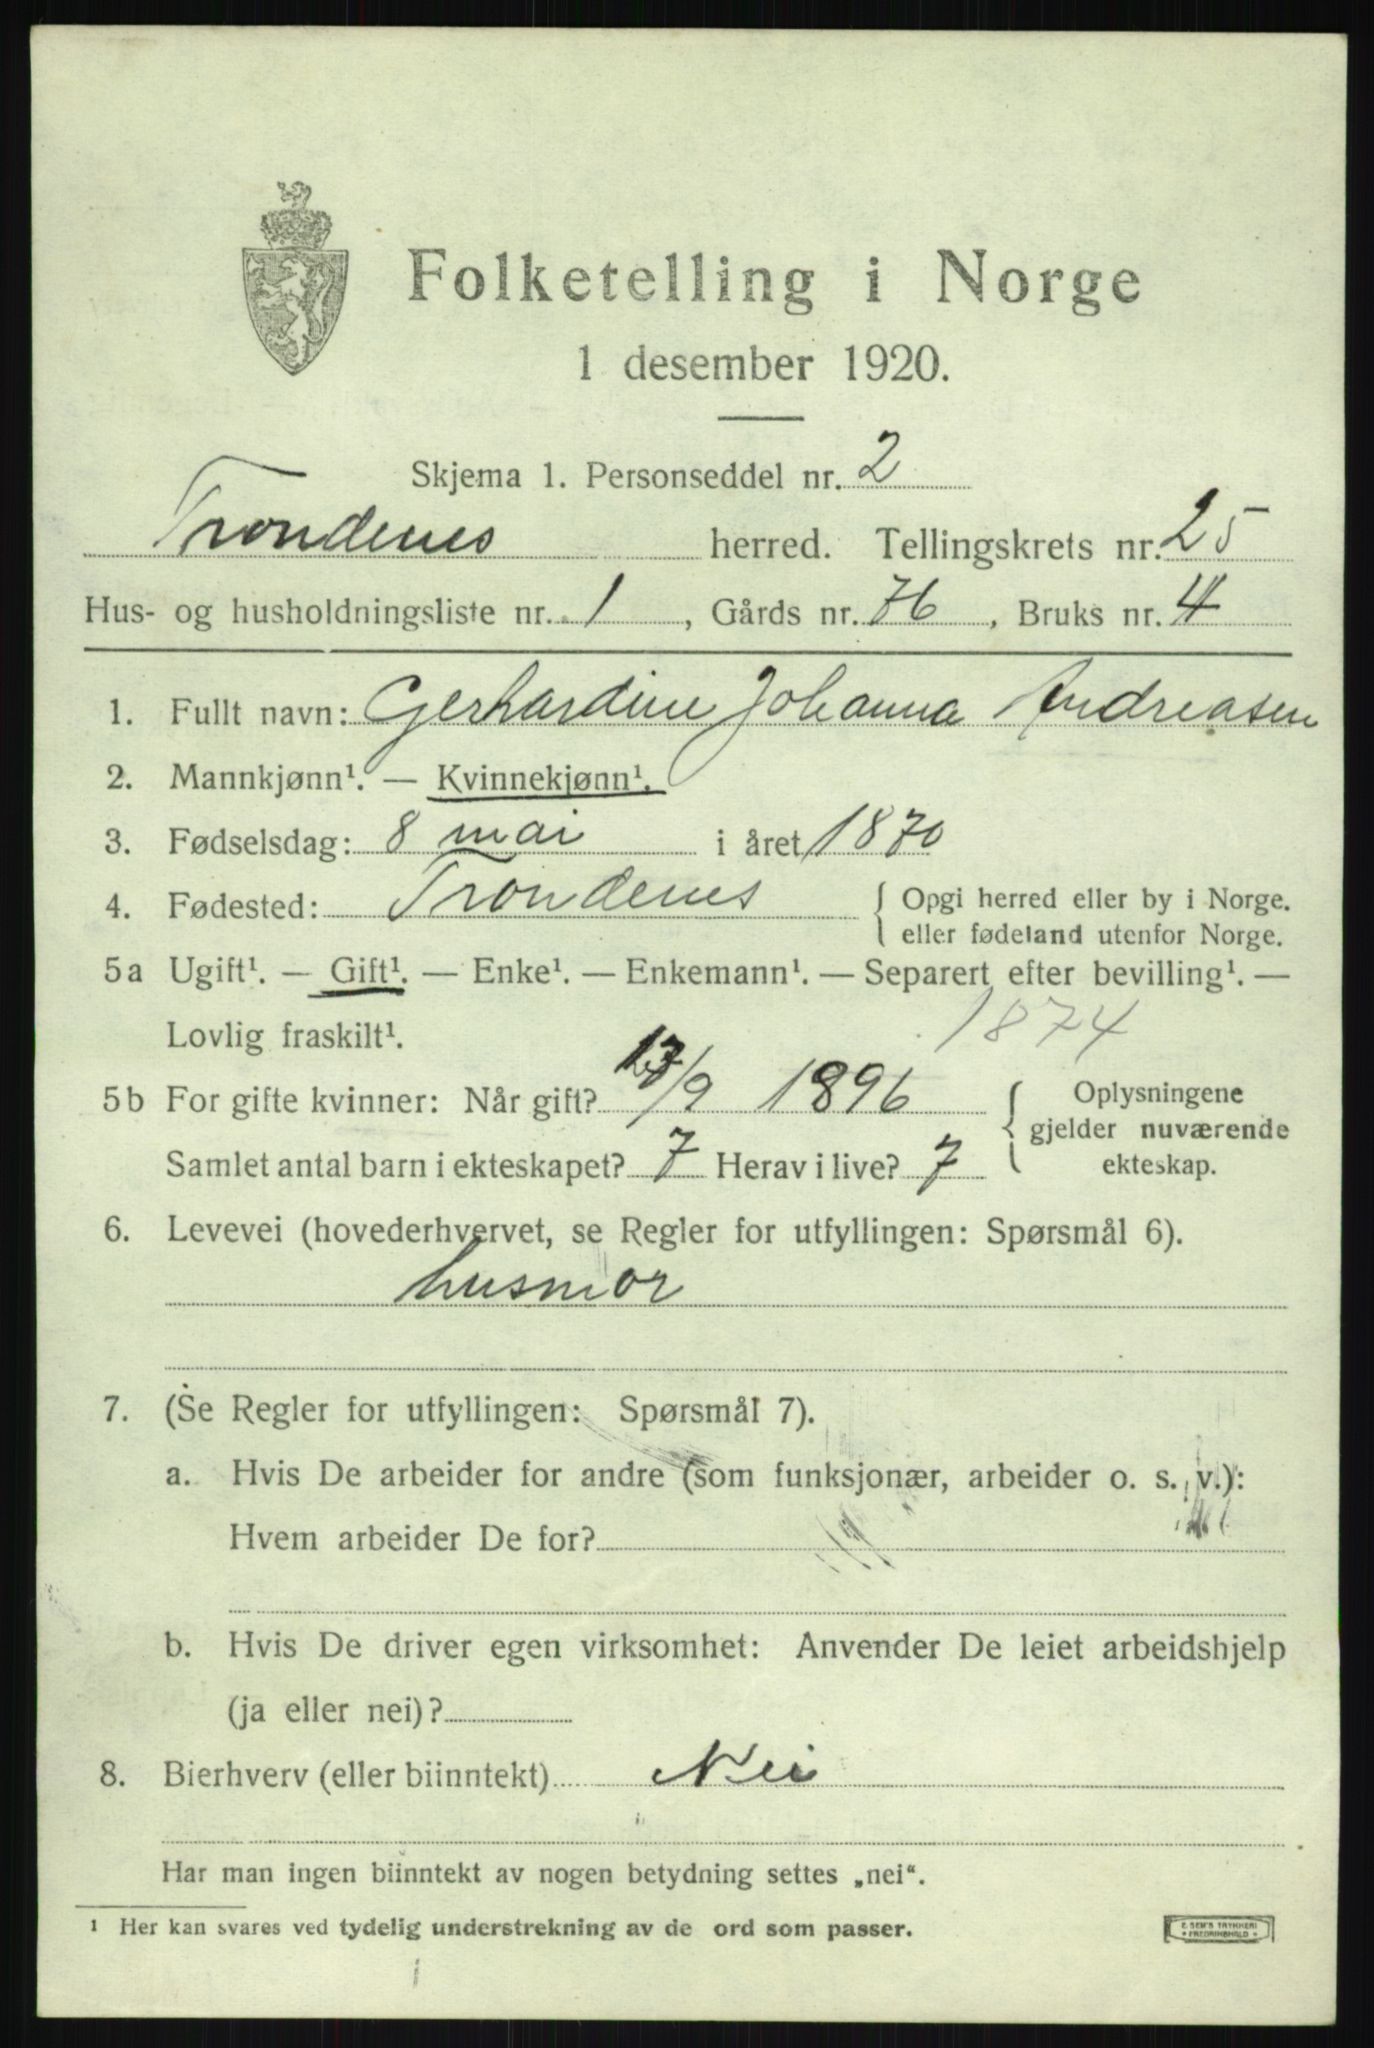 Folketelling i Norge
1 desember 1920.
Skjema 1. Personseddel nr. 2
Trondenes herred. Tellingskrets nr. 25
Hus- og husholdningsliste nr. 1, Gårds nr. 76, Bruks nr. 4
1. Fullt navn: Gerhardine Johanna Andreasen
2. Mannkjønn¹. — Kvinnekjønn¹.
3. Fødselsdag: 8 mai i året 1870
4. Fødested: Trondenes { Opgi herred eller by i Norge.
eller fødeland utenfor Norge.
5a Ugift¹. — Gift¹. — Enke¹. — Enkemann¹. — Separert efter bevilling¹. —
Lovlig fraskilt¹. 1874
5b For gifte kvinner: Når gift? /9 1896 { Oplysningene
gjelder nuværende
Samlet antal barn i ekteskapet? 7 Herav i live? 7 ekteskap.
6. Levevei (hovederhvervet, se Regler for utfyllingen: Spørsmål 6).
husmor
7. (Se Regler for utfyllingen: Spørsmål 7).
a. Hvis De arbeider for andre (som funksjonær, arbeider o. s. v.):
Hvem arbeider De for?
b. Hvis De driver egen virksomhet: Anvender De leiet arbeidshjelp
(ja eller nei)?
8. Bierhverv (eller biinntekt) Nei
Har man ingen biinntekt av nogen betydning settes „nei“.
¹ Her kan svares ved tydelig understrekning av de ord som passer.
E. SEM'S TRYKKERI
FREDRIKSHALD